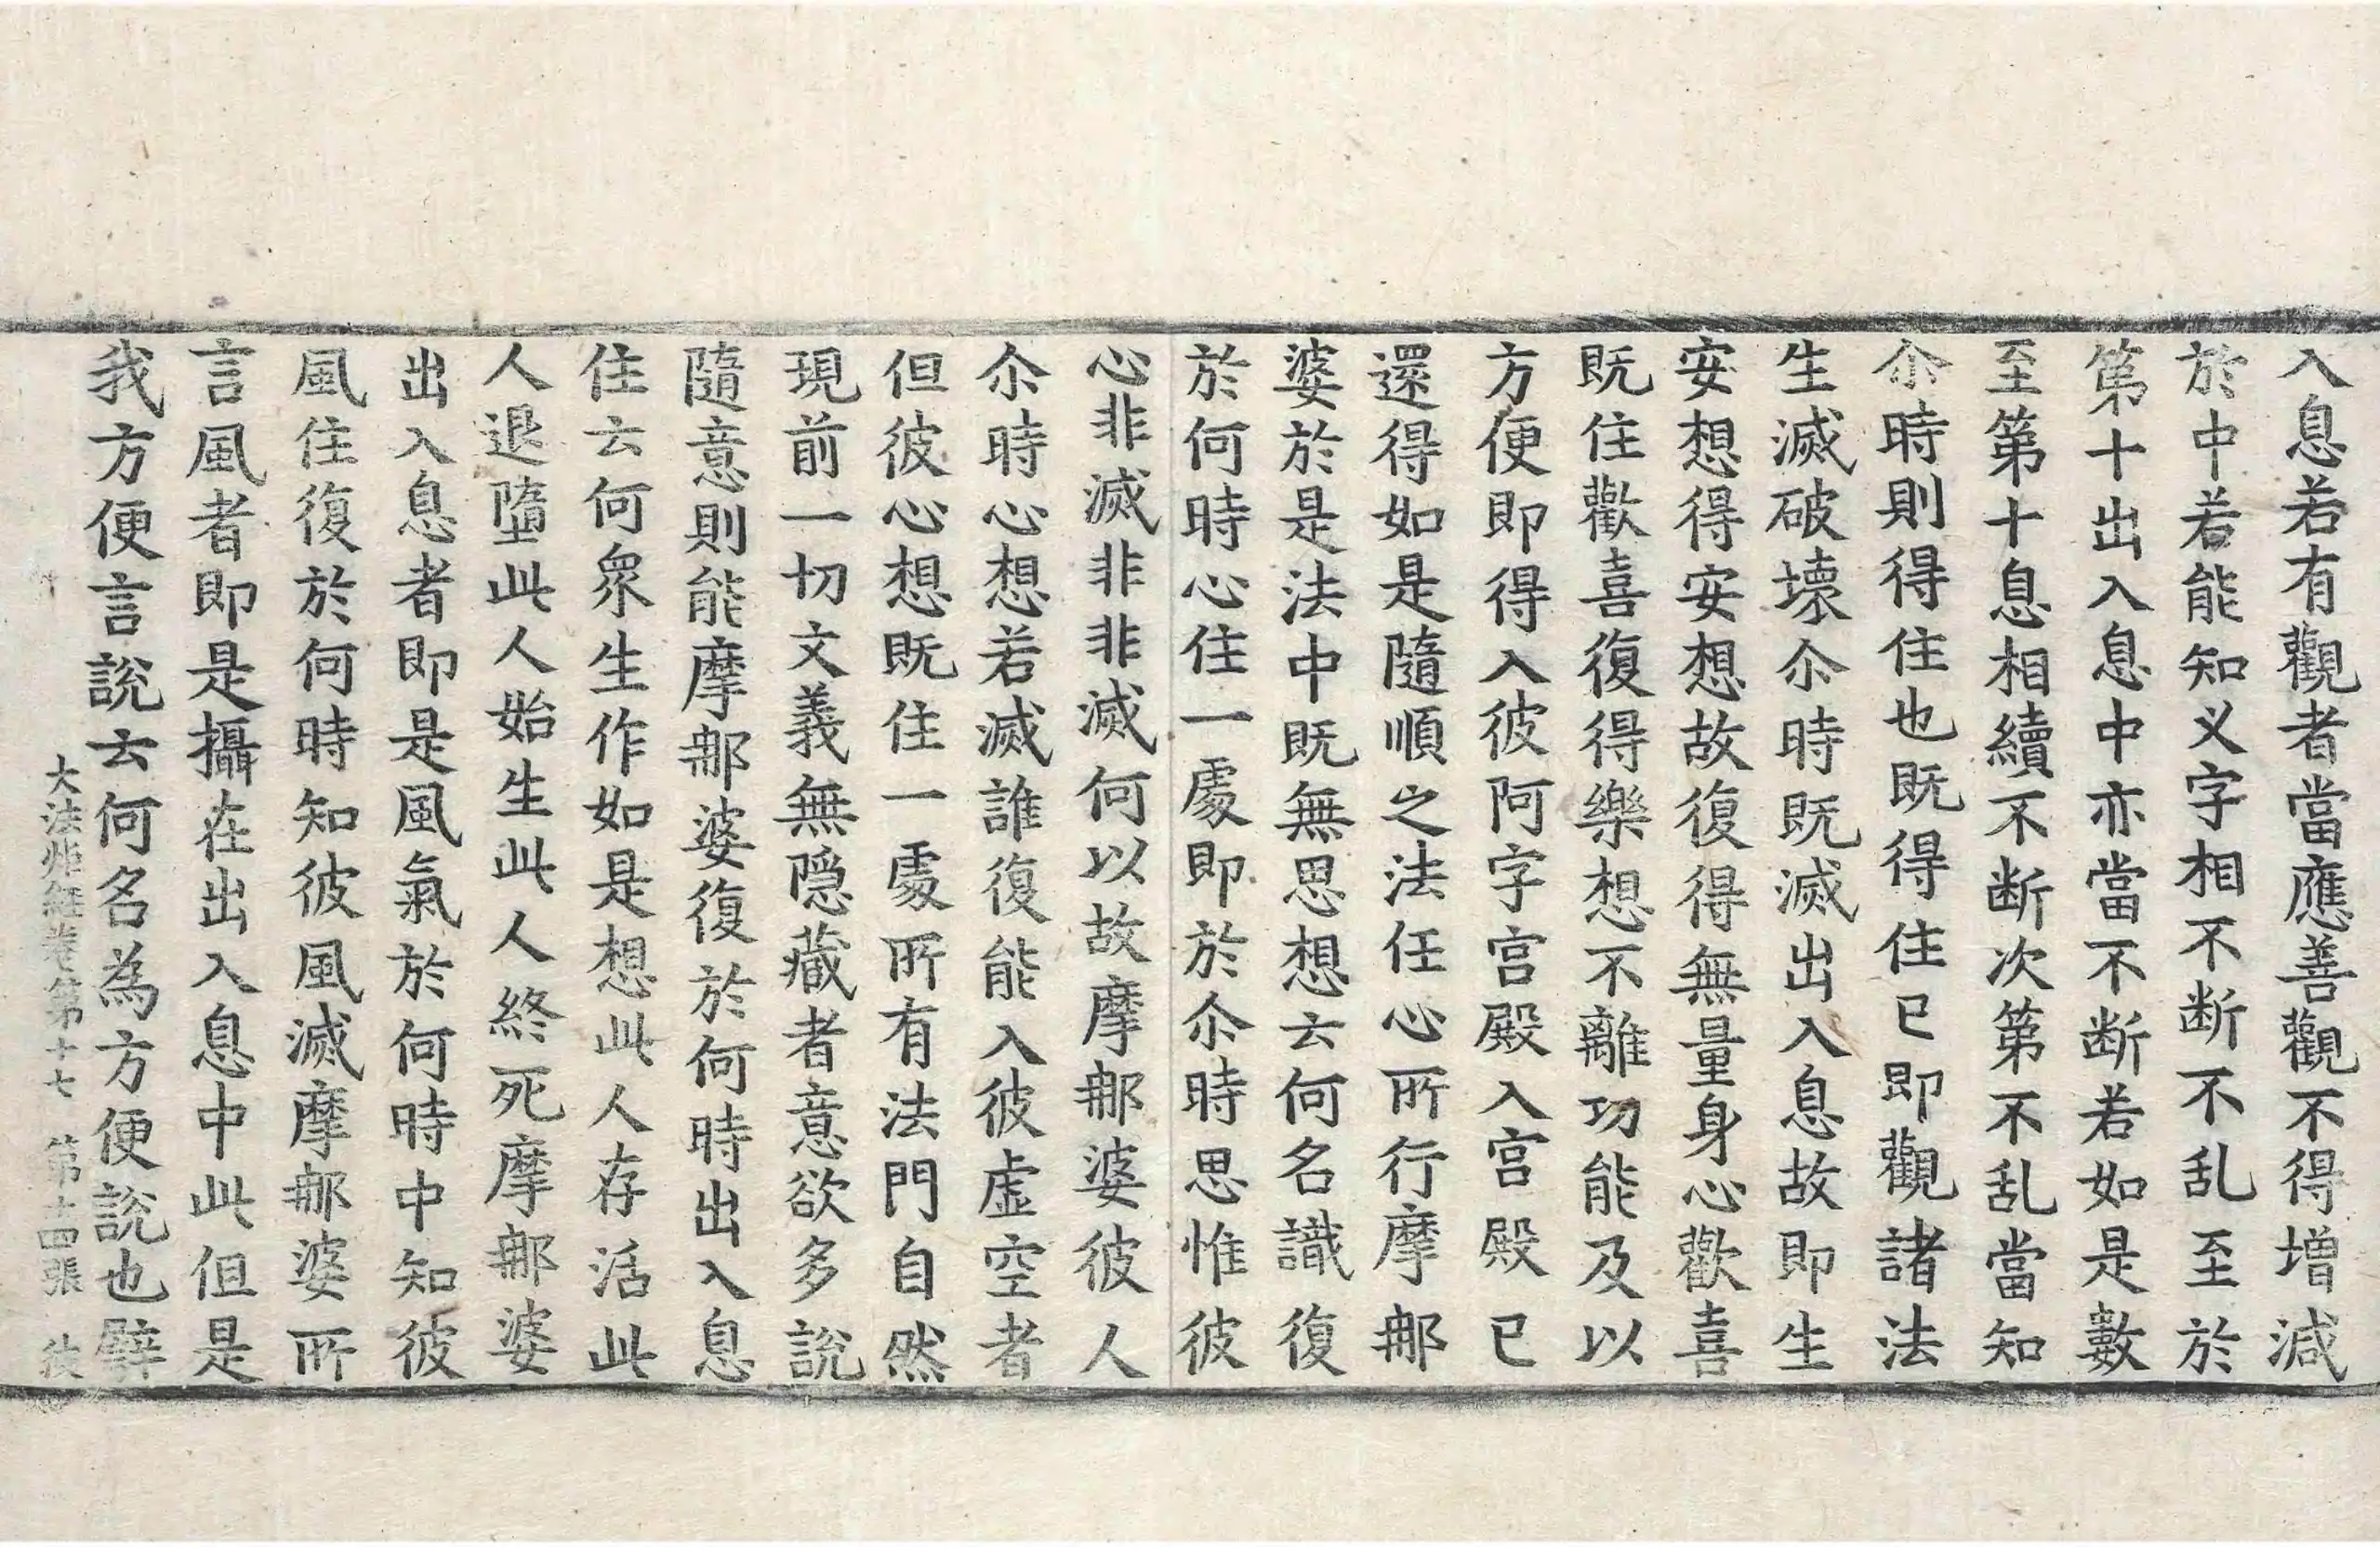 入息若有觀者當應善觀不得增減
於中若能知义字相不断不乱至於
第十出入息中亦當不断若如是數
至第十息相續不断次第不乱當知
尒時則得住也既得住已即觀諸法
生滅破壞尒時既滅出入息故即生
安想得安想故復得無量身心歡喜
既住歡喜復得樂想不離功能及以
方便即得入彼阿字宫殿入宫殿已
還得如是隨順之法任心所行摩郍
婆於是法中既無思想云何名識復
於何時心住一處即於尒時思惟彼
心非滅非非滅何以故摩郍婆彼人
尒時心想若滅誰復能入彼虚空者
但彼心想既住一處所有法門自然
現前一切文義無隱藏者意欲多說
隨意則能摩郍婆復於何時出入息
住云何衆生作如是想此人存活此
人退墮此人始生此人終死摩郍婆
出入息者即是風氣於何時中知彼
風住復於何時知彼風滅摩郍婆所
言風者即是攝在出入息中此但是
我方便言說云何名為方便說也譬
大法炬經卷第十七 第十四張 彼